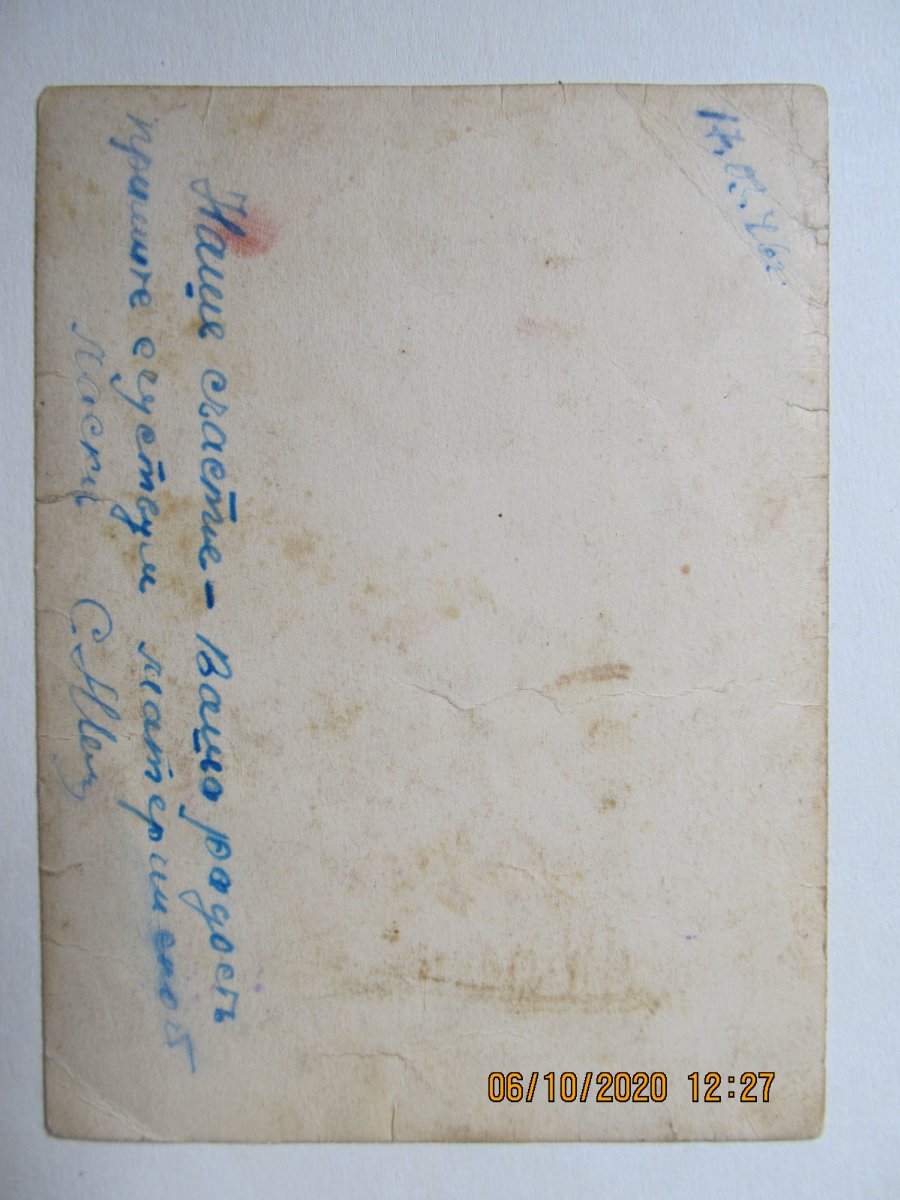 17.02.46г.
Наше счастье - Ваша радость
примите с чуством материнской
ласки С.
06/10/2020 12:27